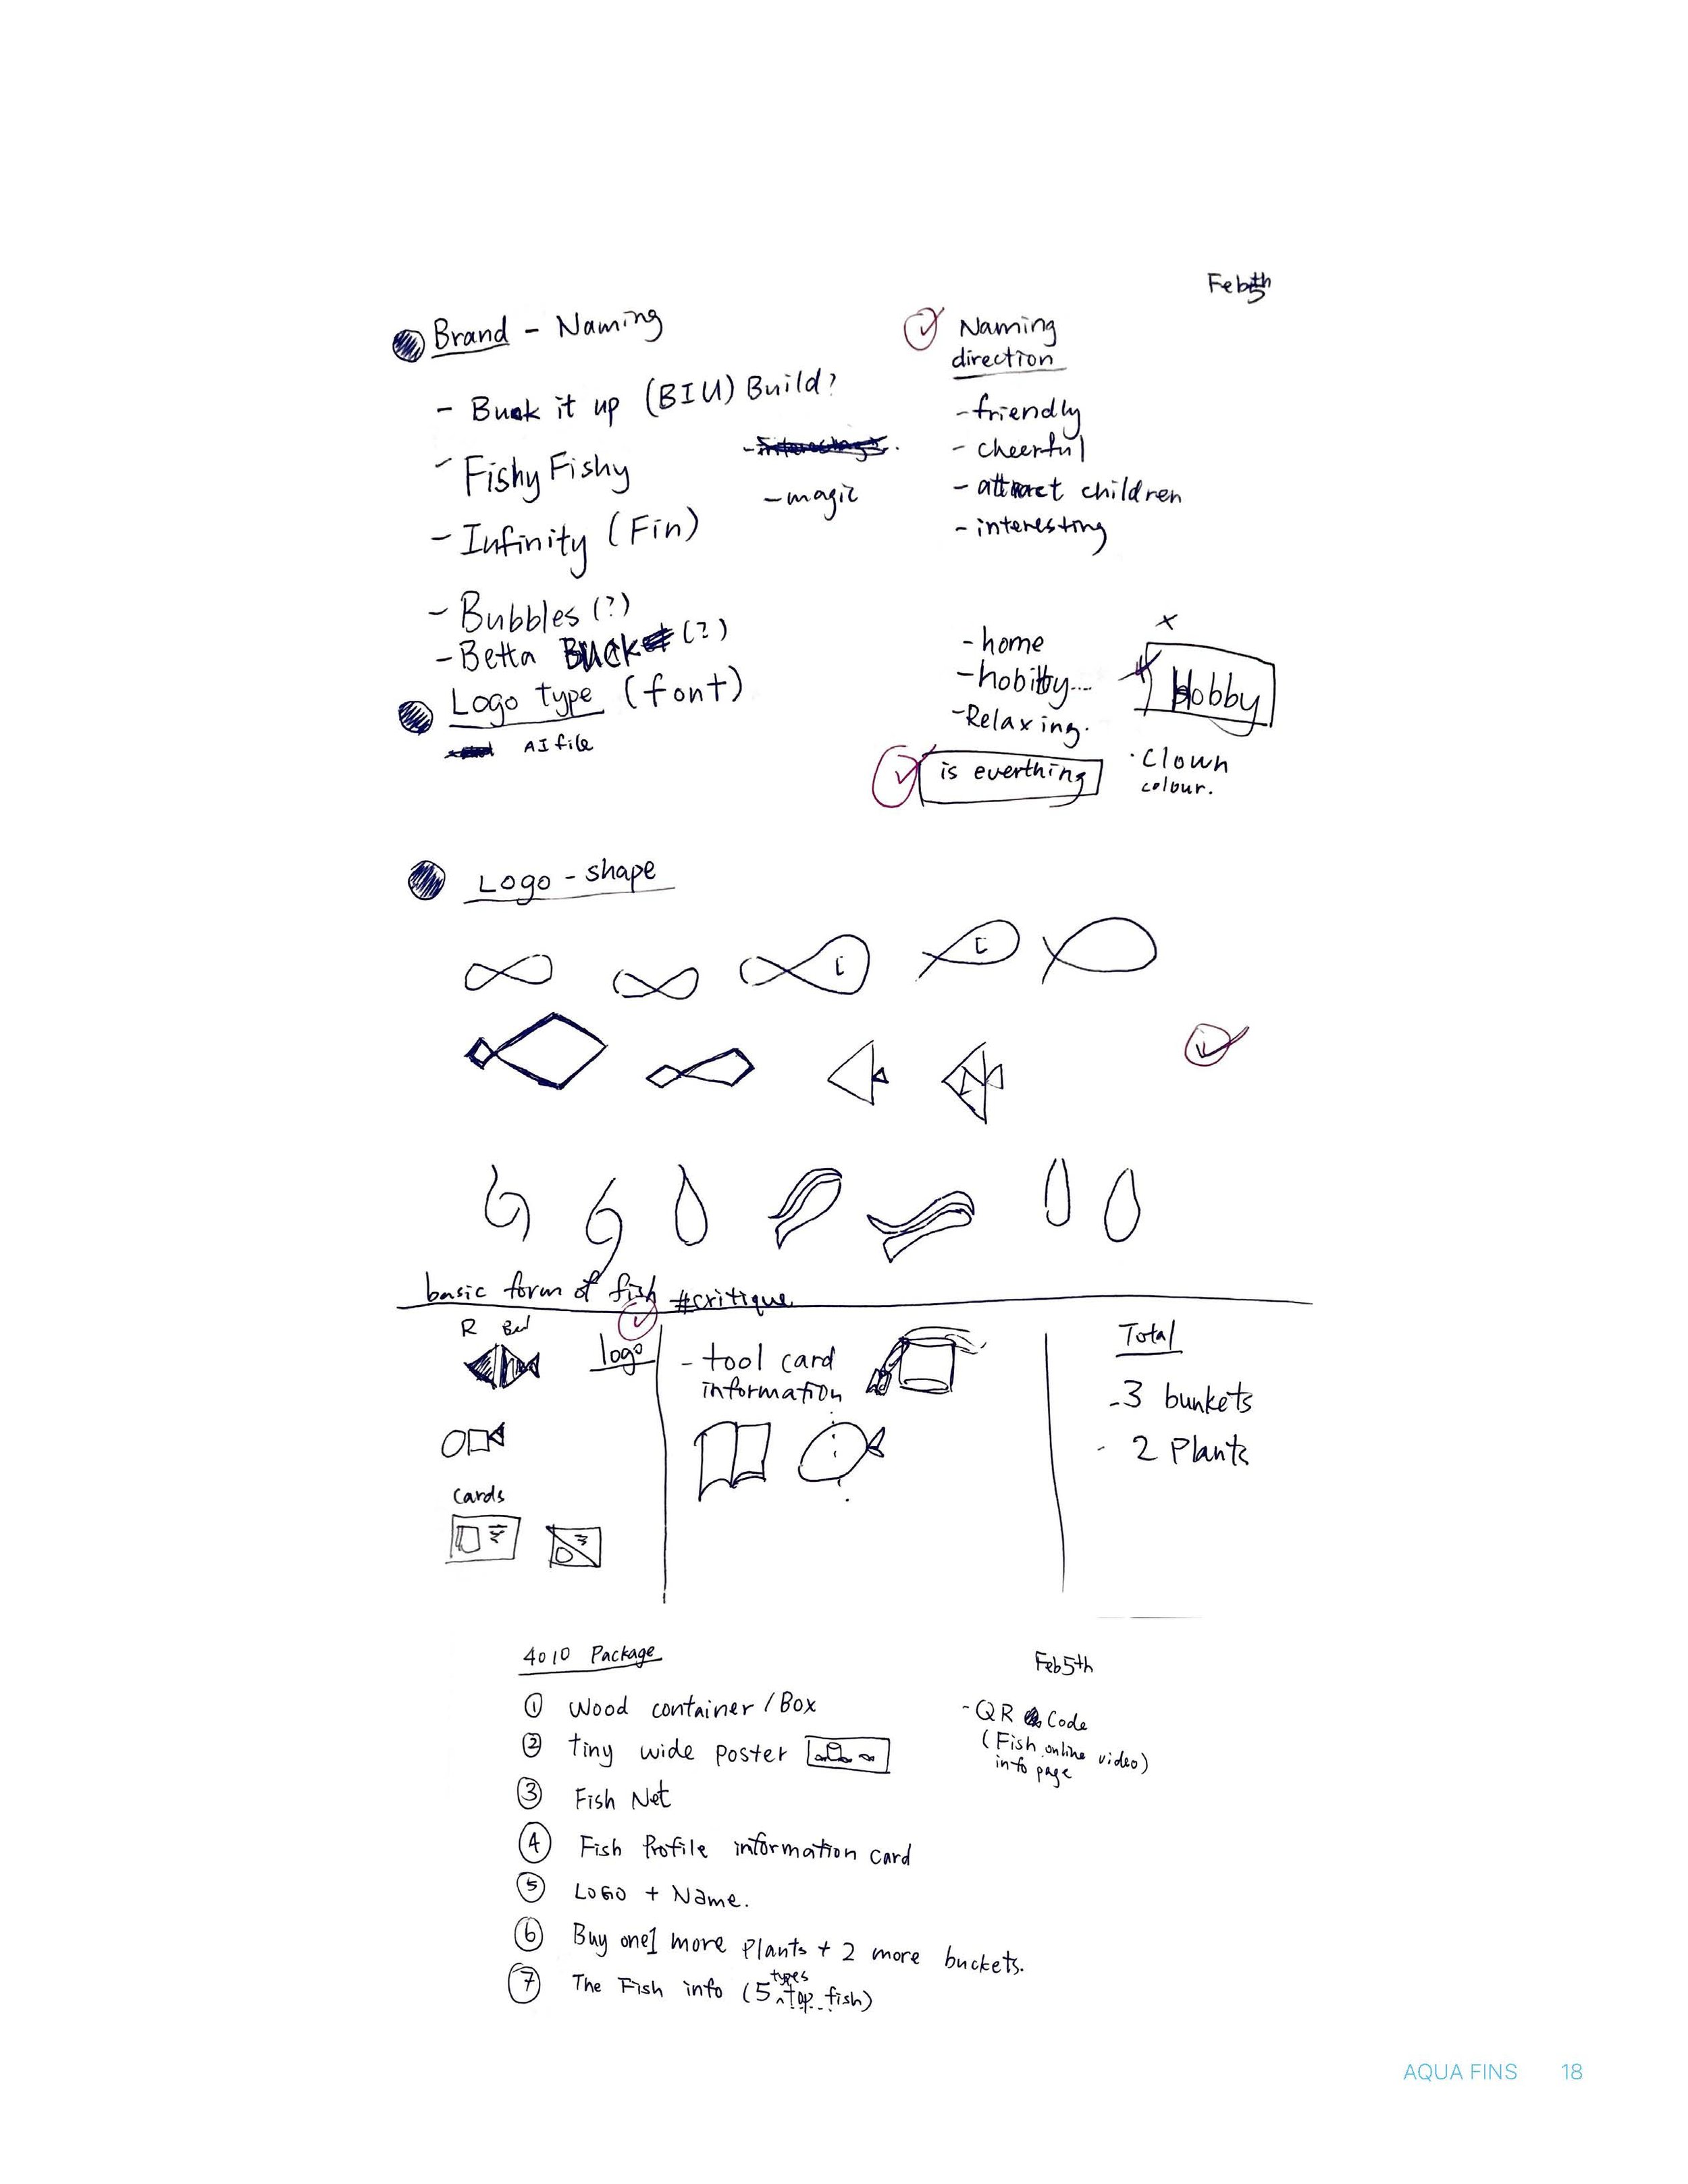 Feb 5th
Brand - Naming
- Buck it up (BIU) Build?
- Fishy Fishy
- magic
- Infinity (Fin)
- Bubbles (?)
- Betta Buck (?)
Naming
direction
- friendly
- cheerful
- attract children
- interesting
- home
- hobitty...
- Relaxing.
is everthing
x
Hobby
· Clown
colour.
Logo type (font)
AI file
Logo - shape
basic form of fish #critique
R
logo
cards
- tool card
information
Total
- 3 bunkets
- 2 Plants
4010 Package
① Wood container / Box
② tiny wide poster
③ Fish Net
④ Fish Profile information card
⑤ LOGO + Name.
⑥ Buy one1 more Plants + 2 more buckets.
⑦ The Fish info (5 types top fish)
Feb 5th
- QR Code
(Fish online video)
info page
AQUA FINS 18